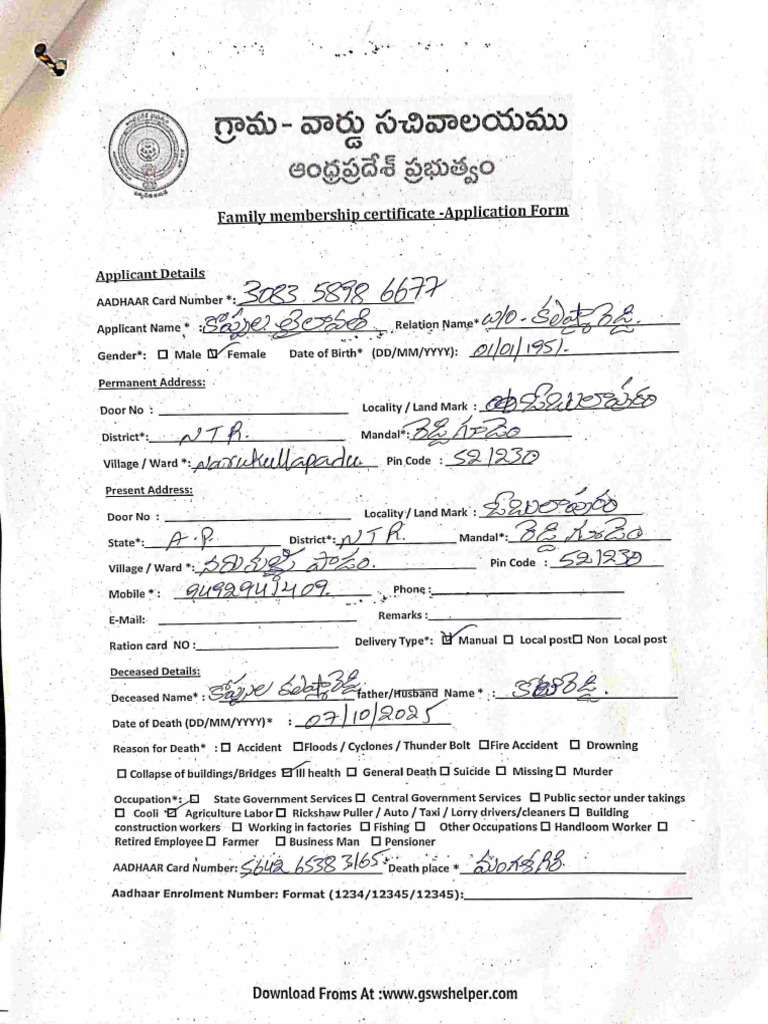 గ్రామ - వార్డు సచివాలయము
ఆంధ్రప్రదేశ్ ప్రభుత్వం
Family membership certificate -Application Form
Applicant Details
AADHAAR Card Number *: 3083 5898 6677
Applicant Name * : కొప్పుల లైలావతి Relation Name* w/o
Gender*: Male Female Date of Birth* (DD/MM/YYYY): 01/01/1951.
Permanent Address:
Door No : Locality / Land Mark : ఓబులాపురం
District*: NTR. Mandal*: రెడ్డిగూడెం
Village / Ward *: Narukullapadu Pin Code : 521230
Present Address:
Door No : Locality / Land Mark : ఓబులాపురం
State*: A.P. District*: NTR. Mandal*: రెడ్డిగూడెం
Village / Ward *: నరుకుళ్ళపాడు. Pin Code : 521230
Mobile * : 9492941409. Phone :
E-Mail: Remarks :
Ration card NO : Delivery Type*: Manual Local post Non Local post
Deceased Details:
Deceased Name* : కొప్పుల father/Husband Name * : కోటిరెడ్డి.
Date of Death (DD/MM/YYYY)* : 07/10/2025
Reason for Death* : Accident Floods / Cyclones / Thunder Bolt Fire Accident Drowning
Collapse of buildings/Bridges Ill health General Death Suicide Missing Murder
Occupation*: State Government Services Central Government Services Public sector under takings
Cooli Agriculture Labor Rickshaw Puller / Auto / Taxi / Lorry drivers/cleaners Building
construction workers Working in factories Fishing Other Occupations Handloom Worker
Retired Employee Farmer Business Man Pensioner
AADHAAR Card Number: 5642 6538 3165. Death place * మంగళగిరి
Aadhaar Enrolment Number: Format (1234/12345/12345):
Download Froms At :www.gswshelper.com